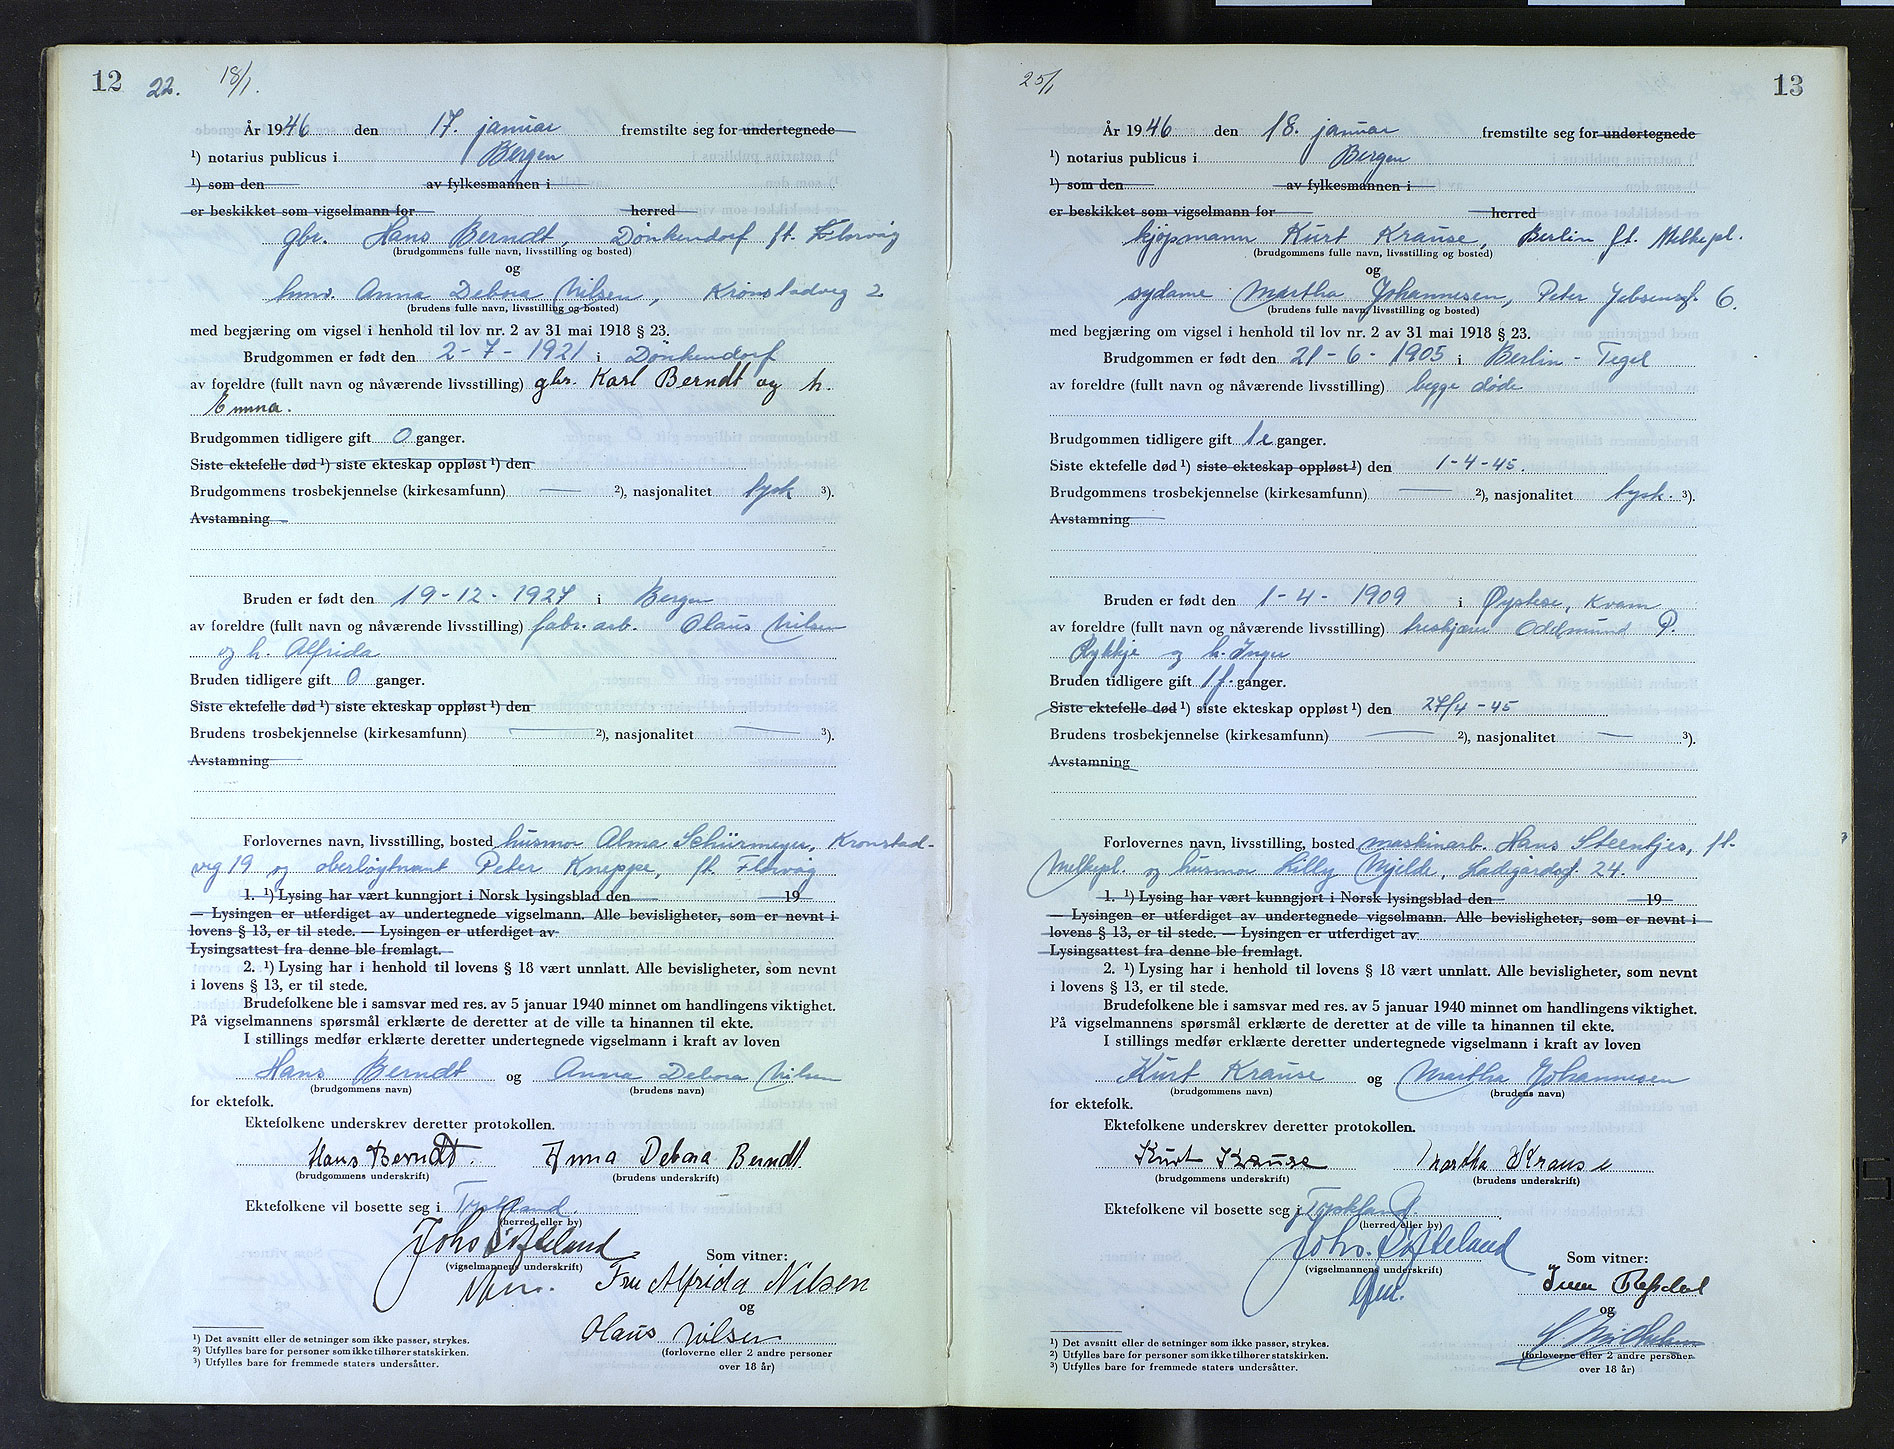 12 22. 18/1.
År 1946 den 17. januar fremstilte seg for undertegnede
¹) notarius publicus i Bergen
¹) som den av fylkesmannen i
er beskikket som vigselmann for herred
gbr. Hans Berndt, Dönkendorf ft. Florvåg
(brudgommens fulle navn, livsstilling og bosted)
og
Anna Debora Nilsen, Kronstadveg 2
(brudens fulle navn, livsstilling og bosted)
med begjæring om vigsel i henhold til lov nr. 2 av 31 mai 1918 § 23.
Brudgommen er født den 2-7-1921 i Dönkendorf
av foreldre (fullt navn og nåværende livsstilling) gbr. Karl Berndt og h.
Emma.
Brudgommen tidligere gift 0 ganger.
Siste ektefelle død ¹) siste ekteskap oppløst ¹) den
Brudgommens trosbekjennelse (kirkesamfunn) — ²), nasjonalitet tysk ³).
Avstamning
Bruden er født den 19-12-1927 i Bergen
av foreldre (fullt navn og nåværende livsstilling) fabr. arb. Olaus Nilsen
og h. Alfrida
Bruden tidligere gift 0 ganger.
Siste ektefelle død ¹) siste ekteskap oppløst ¹) den
Brudens trosbekjennelse (kirkesamfunn) — ²), nasjonalitet — ³).
Avstamning
Forlovernes navn, livsstilling, bosted husmor Alma Schürmeyer, Kronstad-
veg 19 og oberløytnant Peter Kneppe, ft. Florvåg
1. ¹) Lysing har vært kunngjort i Norsk lysingsblad den 19
— Lysingen er utferdiget av undertegnede vigselmann. Alle bevisligheter, som er nevnt i
lovens § 13, er til stede. — Lysingen er utferdiget av
Lysingsattest fra denne ble fremlagt.
2. ¹) Lysing har i henhold til lovens § 18 vært unnlatt. Alle bevisligheter, som nevnt
i lovens § 13, er til stede.
Brudefolkene ble i samsvar med res. av 5 januar 1940 minnet om handlingens viktighet.
På vigselmannens spørsmål erklærte de deretter at de ville ta hinannen til ekte.
I stillings medfør erklærte deretter undertegnede vigselmann i kraft av loven
Hans Berndt og Anna Debora Nilsen
(brudgommens navn) (brudens navn)
for ektefolk.
Ektefolkene underskrev deretter protokollen.
Hans Berndt. Anna Debora Berndt
(brudgommens underskrift) (brudens underskrift)
Ektefolkene vil bosette seg i Tyskland.
(herred eller by)
Johs Sifteland
Som vitner:
(vigselmannens underskrift)
Fru Alfrida Nilsen
og
Olaus Nilsen
(forloverne eller 2 andre personer
over 18 år)
¹) Det avsnitt eller de setninger som ikke passer, strykes.
²) Utfylles bare for personer som ikke tilhører statskirken.
³) Utfylles bare for fremmede staters undersåtter.
25/1 13
År 1946 den 18. januar fremstilte seg for undertegnede
¹) notarius publicus i Bergen
¹) som den av fylkesmannen i
er beskikket som vigselmann for herred
kjøpmann Kurt Krause, Berlin ft. Melkepl.
(brudgommens fulle navn, livsstilling og bosted)
og
sydame Martha Johannesen, Peter Jebsensg. 6.
(brudens fulle navn, livsstilling og bosted)
med begjæring om vigsel i henhold til lov nr. 2 av 31 mai 1918 § 23.
Brudgommen er født den 21-6-1905 i Berlin-Tegel
av foreldre (fullt navn og nåværende livsstilling) begge døde
Brudgommen tidligere gift 1 e ganger.
Siste ektefelle død ¹) siste ekteskap oppløst ¹) den 1-4-45.
Brudgommens trosbekjennelse (kirkesamfunn) — ²), nasjonalitet tysk. ³).
Avstamning
Bruden er født den 1-4-1909 i Øystese, Kvam
av foreldre (fullt navn og nåværende livsstilling) treskjærer Oddmund P.
Rykkje og h. Inger
Bruden tidligere gift 1 f. ganger.
Siste ektefelle død ¹) siste ekteskap oppløst ¹) den 27/4-45
Brudens trosbekjennelse (kirkesamfunn) — ²), nasjonalitet — ³).
Avstamning
Forlovernes navn, livsstilling, bosted maskinarb. Hans Steentjes, ft.
Melkepl. og husmor Lilly Mjelde, Ladegårdsg. 24.
1. ¹) Lysing har vært kunngjort i Norsk lysingsblad den 19
— Lysingen er utferdiget av undertegnede vigselmann. Alle bevisligheter, som er nevnt i
lovens § 13, er til stede. — Lysingen er utferdiget av
Lysingsattest fra denne ble fremlagt.
2. ¹) Lysing har i henhold til lovens § 18 vært unnlatt. Alle bevisligheter, som nevnt
i lovens § 13, er til stede.
Brudefolkene ble i samsvar med res. av 5 januar 1940 minnet om handlingens viktighet.
På vigselmannens spørsmål erklærte de deretter at de ville ta hinannen til ekte.
I stillings medfør erklærte deretter undertegnede vigselmann i kraft av loven
Kurt Krause og Martha Johannesen
(brudgommens navn) (brudens navn)
for ektefolk.
Ektefolkene underskrev deretter protokollen.
Kurt Krause Martha Krause
(brudgommens underskrift) (brudens underskrift)
Ektefolkene vil bosette seg i Tyskland.
(herred eller by)
Johs. Sifteland
Som vitner:
(vigselmannens underskrift)
og
(forloverne eller 2 andre personer
over 18 år)
¹) Det avsnitt eller de setninger som ikke passer, strykes.
²) Utfylles bare for personer som ikke tilhører statskirken.
³) Utfylles bare for fremmede staters undersåtter.